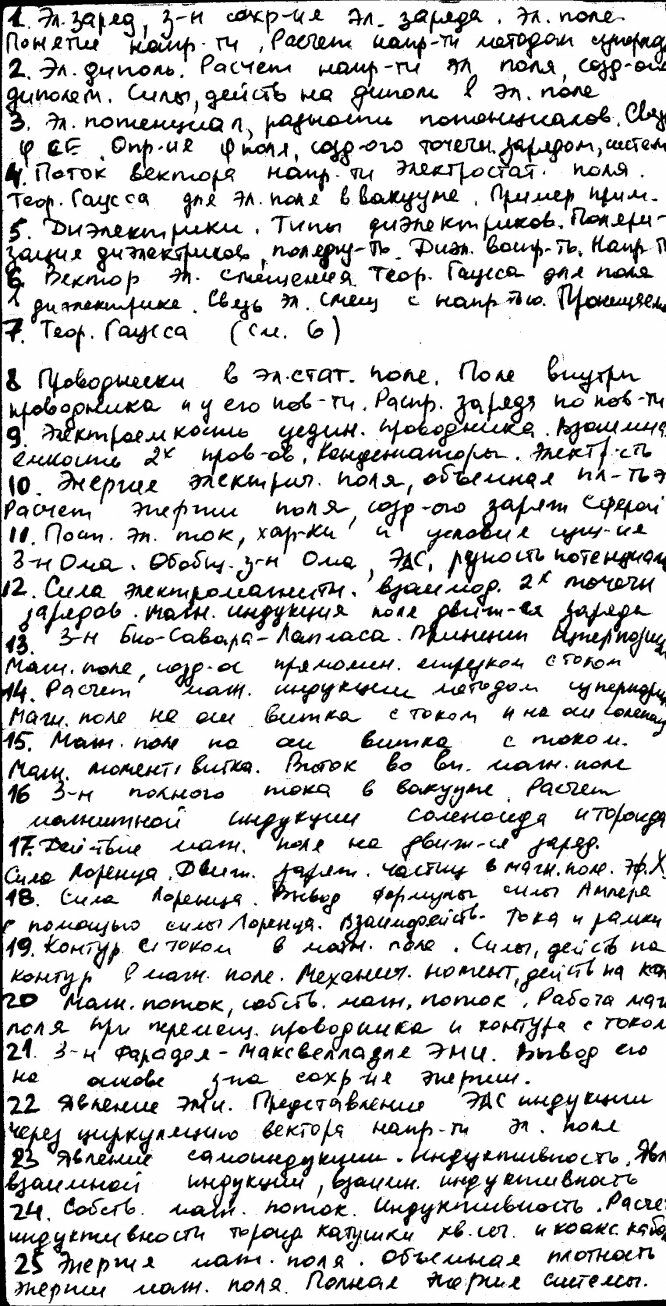 1. Эл. заряд, з-н сохр-ия эл. заряда. Эл. поле.
Понятие напр-ти, Расчет напр-ти методом суперпоз
2. Эл. диполь. Расчет напр-ти эл поля, созд-ого
диполем. Силы, действ на диполь в эл. поле
3. Эл. потенциал, разность потенциалов. Связ
φ с E. Опр-ие φ поля, созд-ого точечн. зарядом, систем
4. Поток вектора напр-ти электростат. поля.
Теор. Гаусса для эл. поля в вакууме. Пример прим.
5. Диэлектрики. Типы диэлектриков. Поляри-
зация диэлектриков, поляр-ть. Диэл. воспр-ть. Напр-т
6 Вектор эл. смещения Теор. Гаусса для поля
в диэлектрике. Связь эл. смещ с напр-тью. Проницаем
7. Теор. Гаусса (см. 6)
8 Проводники в эл.стат. поле. Поле внутри
проводника и у его пов-ти. Распр. заряда по пов-ти
9. Электроемкость уедин. проводника. Взаимная
емкость 2х пров-ов. Конденсаторы. Электр-сть
10. Энергия электрич. поля, объемная пл-ть э
Расчет энергии поля, созд-ого заряж сферой
11. Пост. эл. ток, хар-ки и условия сущ-ия
З-н Ома. Обобщ. з-н Ома, ЭДС, разность потенциал
12. Сила электромагнитн. взаимод. 2х точечн
зарядов. магн. индукция поля движ-ся заряда
13. З-н Био-Савара-Лапласа. Принцип суперпозиц
Магн. поле, созд-ое прямолин. отрезком с током
14. Расчет маг. индукции методом суперпоз
Магн. поле на оси витка с током и на оси соленоид
15. Магн. поле на оси витка с током.
Магн. момент витка. Виток во вн. магн. поле
16 З-н полного тока в вакууме. Расчет
магнитной индукции соленоида и тороида
17. Действие магн. поля на движ-ся заряд.
Сила Лоренца. Движ. заряж. частиц в магн. поле. Эф. Х
18. Сила Лоренца. Вывод формулы силы Ампера
с помощью силы Лоренца. Взаимодейств. тока и рамки
19. Контур с током в магн. поле. Силы, действ на
контур в магн. поле. Механич. момент, действ на кон
20 Магн. поток, собств. магн. поток. Работа маг
поля при перемещ. проводника и контура с током
21. З-н Фарадея - Максвелла для ЭМИ. Вывод его
на основе з-на сохр-ия энергии.
22 Явление ЭМИ. Представление ЭДС индукции
через циркуляцию вектора напр-ти эл. поля
23 Явление самоиндукции. Индуктивность. Явл
взаимной индукции, взаимн. индуктивность
24. Собств. магн. поток. Индуктивность. Расчет
индуктивности тороид катушки кв. сеч. и коакс кабе
25 Энергия магн. поля. Объемная плотность
энергии магн. поля. Полная энергия системы.